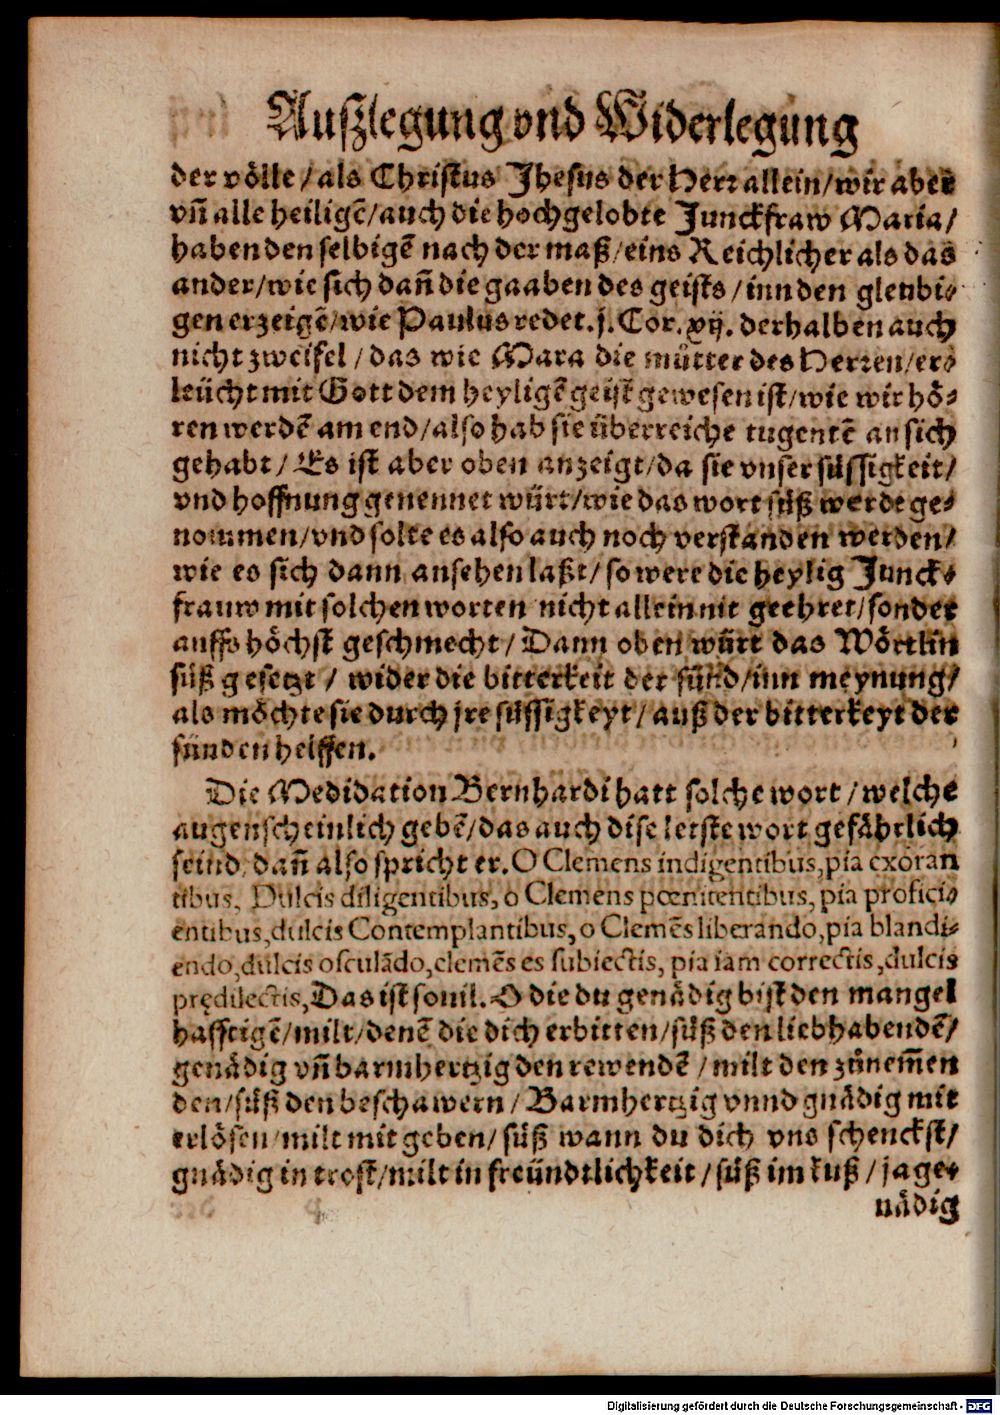 Außlegung vnd Widerlegung
der völle / als Christus Jhesus der Herr allein / wir aber
vñ alle heiligē / auch die hochgelobte Junckfraw Maria /
haben den selbigē nach der maß / eins Reichlicher als das
ander / wie sich dañ die gaaben des geists / inn den gleubi⸗
gen erzeigē / wie Paulus redet. j. Cor. xij. derhalben auch
nicht zweifel / das wie Mara die mütter des Herren / er⸗
leücht mit Gott dem heyligē geist gewesen ist / wie wir hö⸗
ren werdē am end / also hab sie überreiche tugentē an sich
gehabt / Es ist aber oben anzeigt / da sie vnser süssigkeit /
vnd hoffnung genennet würt / wie das wort süß werde ge⸗
nommen / vnd solte es also auch noch verstanden werden /
wie es sich dann ansehen laßt / so were die heylig Junck⸗
frauw mit solchen worten nicht allein nit geehret / sonder
auffs höchst geschmecht / Dann oben würt das Wörtlin
süß gesetzt / wider die bitterkeit der sünd / inn meynung /
als möchte sie durch jre süssigkeyt / auß der bitterkeyt der
sünden helffen.
Die Medidation Bernhardi hatt solche wort / welche
augenscheinlich gebē / das auch dise letste wort gefährlich
seind / dañ also spricht er. O Clemens indigentibus, pia exoran
tibus, Dulcis diligentibus, o Clemens pœnitentibus, pia profici⸗
entibus, dulcis Contemplantibus, o Clemēs liberando, pia blandi⸗
endo, dulcis osculādo, clemēs es subiectis, pia iam correctis, dulcis
prędilectis, Das ist souil. O die du genädig bist den mangel
hafftigē / milt / denē die dich erbitten / süß den liebhabendē /
genädig vñ barmhertzig den rewendē / milt den zůnem̄en
den / süß den beschawern / Barmhertzig vnnd gnädig mit
erlösen / milt mit geben / süß wann du dich vns schenckst /
gnädig in trost / milt in freündtlichkeit / süß im kuß / ja ge⸗
nädig
Digitalisierung gefördert durch die Deutsche Forschungsgemeinschaft - DFG